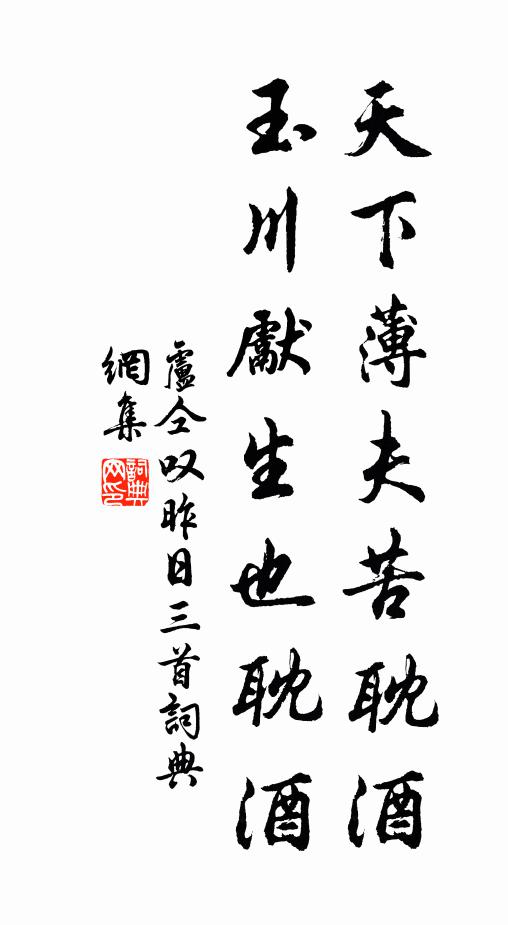 天下薄夫苦耽酒
玉川獻生也耽酒
盧仝叹昨日三首詞典
網集
詞典網印